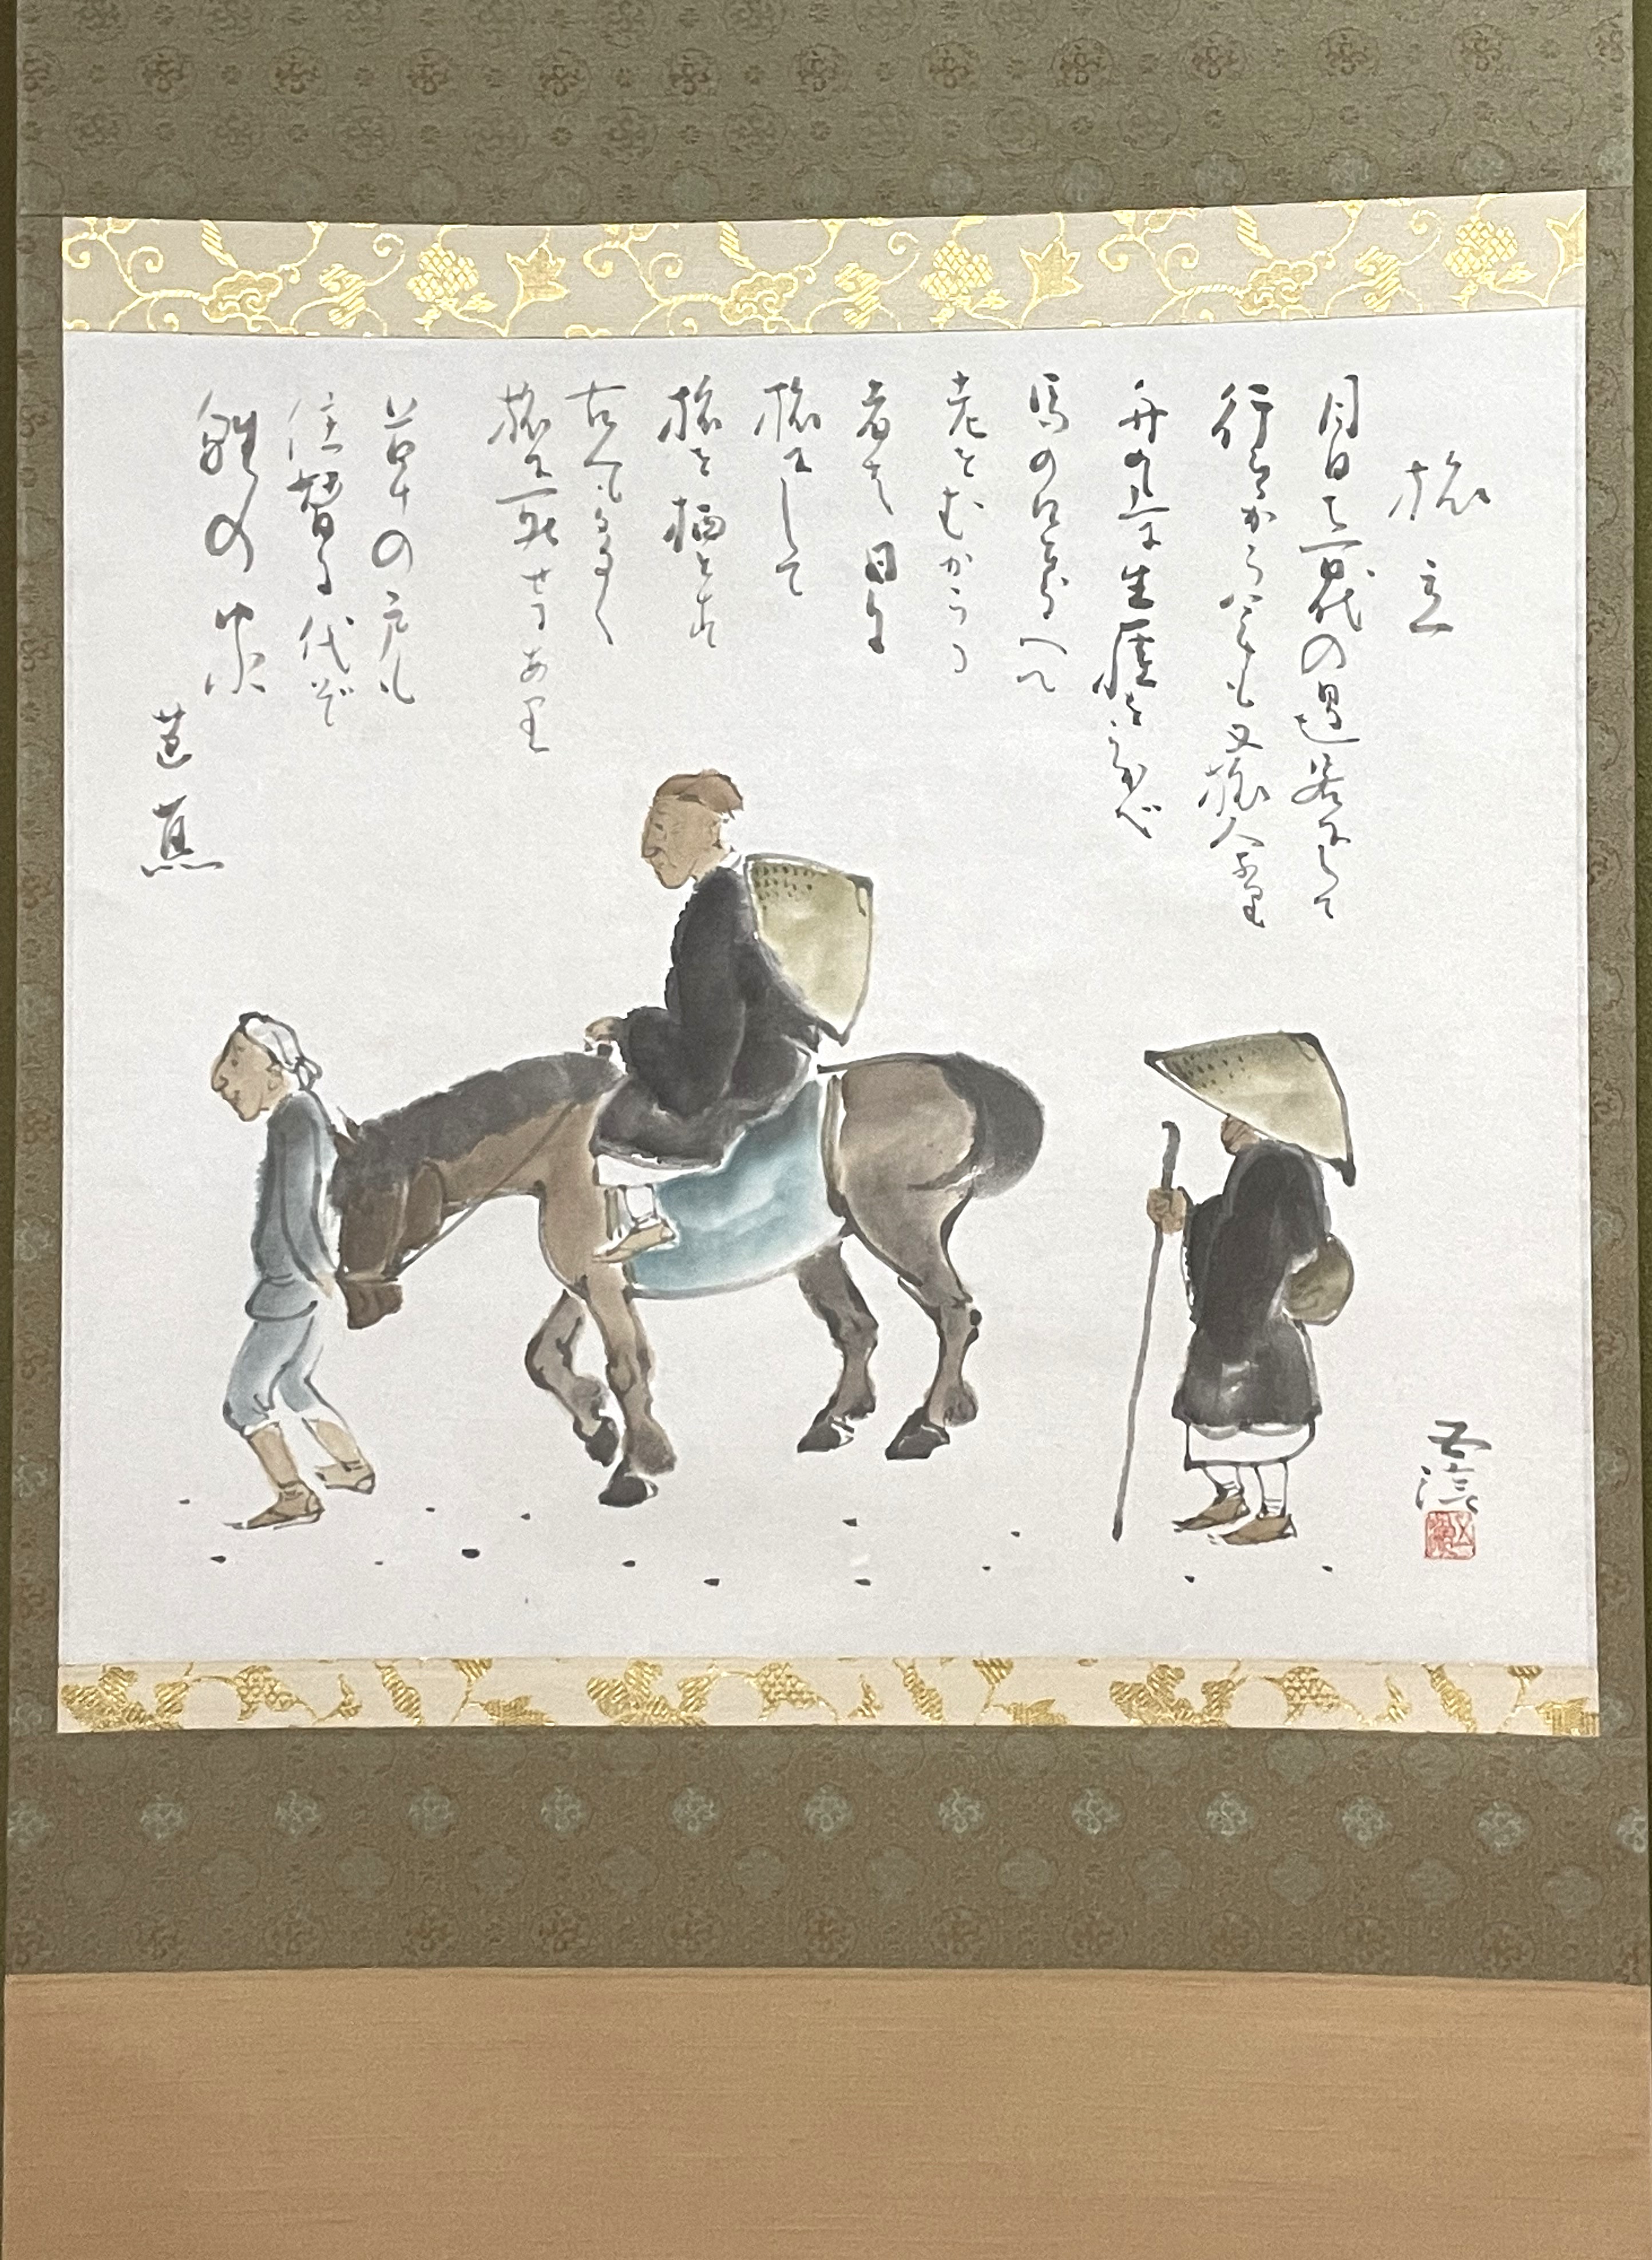 旅立
月日は百代の過客にして
行かふ年も又旅人なり
舟の上に生涯をうかべ
馬の口とらへて
老をむかふる
者は日々
旅にして
旅を栖とす
古人も多く
旅に死せるあり
草の戸も
住替る代ぞ
雛の家
芭蕉